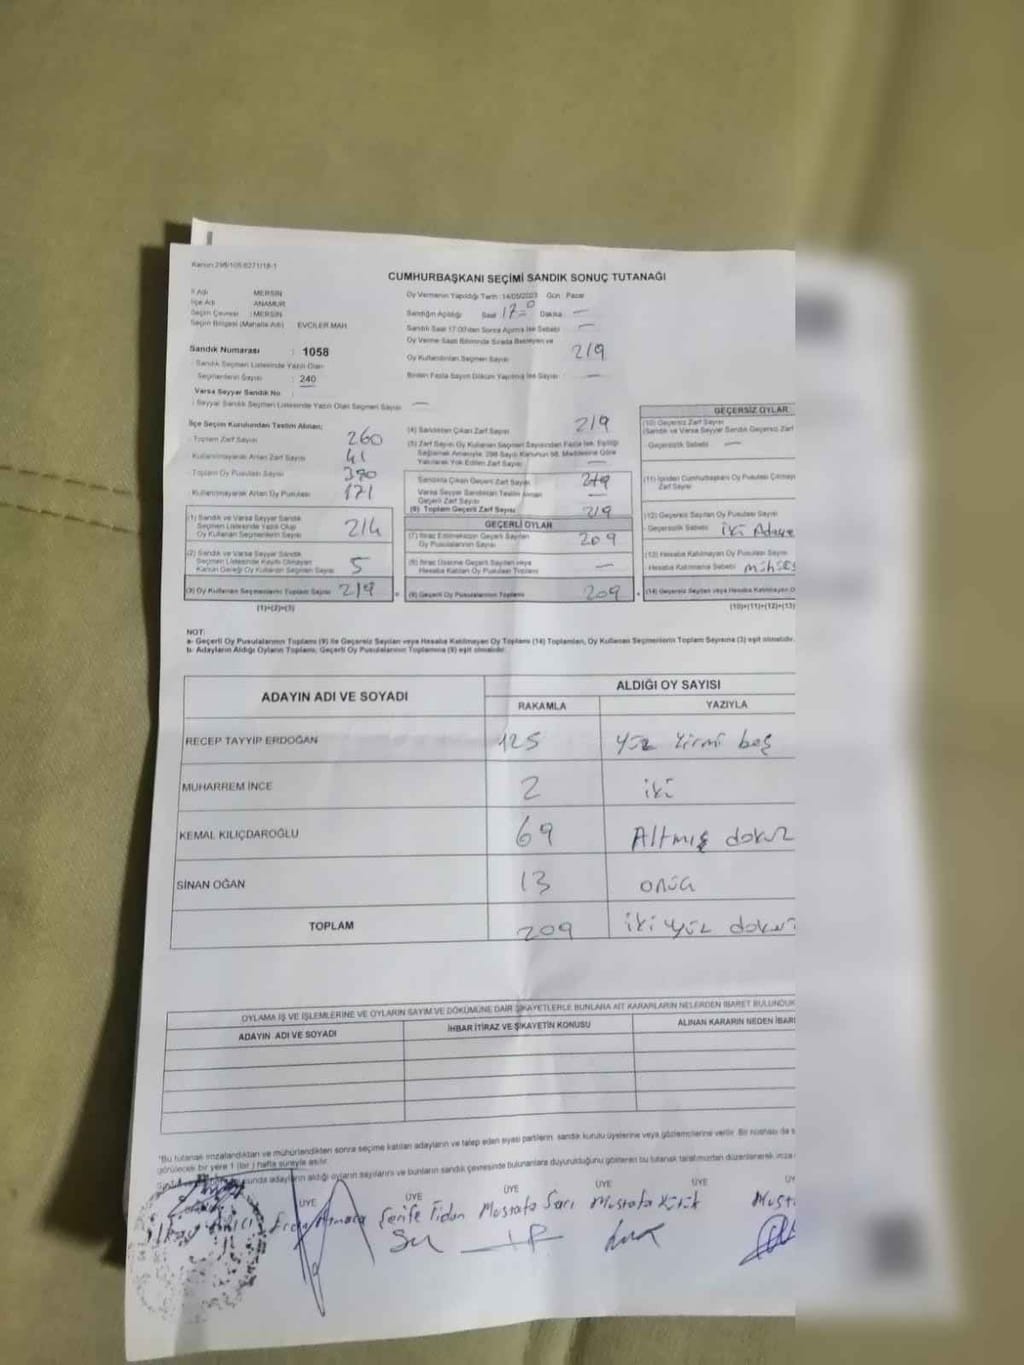 Kanun:298/105-6271/18-1
CUMHURBAŞKANI SEÇİMİ SANDIK SONUÇ TUTANAĞI
İl Adı : MERSİN
İlçe Adı : ANAMUR
Seçim Çevresi : MERSİN
Seçim Bölgesi (Mahalle Adı) : EVCİLER MAH.
Sandık Numarası : 1058
Sandık Seçmen Listesinde Yazılı Olan
Seçmenlerin Sayısı : 240
Varsa Seyyar Sandık No :
Seyyar Sandık Seçmen Listesinde Yazılı Olan Seçmen Sayısı : —
Oy Vermenin Yapıldığı Tarih : 14/05/2023 Gün : Pazar
Sandığın Açıldığı Saat 17:00 Dakika : —
Sandık Saat 17:00'den Sonra Açılma İse Sebebi : —
Oy Verme Saati Bitiminde Sırada Bekleyen ve
Oy Kullandırılan Seçmen Sayısı : 219
Birden Fazla Sayım Döküm Yapılmış İse Sayısı : —
İlçe Seçim Kurulundan Teslim Alınan;
- Toplam Zarf Sayısı : 260
- Kullanılmayarak Artan Zarf Sayısı : 41
- Toplam Oy Pusulası Sayısı : 390
- Kullanılmayarak Artan Oy Pusulası : 171
(1) Sandık ve Varsa Seyyar Sandık
Seçmen Listesinde Yazılı Olup
Oy Kullanan Seçmenlerin Sayısı 214
(2) Sandık ve Varsa Seyyar Sandık
Seçmen Listesinde Kayıtlı Olmayan
Kanun Gereği Oy Kullanan Seçmen Sayısı 5
(3) Oy Kullanan Seçmenlerin Toplam Sayısı 219
(1)+(2)=(3)
(4) Sandıktan Çıkan Zarf Sayısı : 219
(5) Zarf Sayısı Oy Kullanan Seçmen Sayısından Fazla İse, Eşitliği
Sağlamak Amacıyla, 298 Sayılı Kanunun 98. Maddesine Göre
Yakılarak Yok Edilen Zarf Sayısı : —
Sandıkta Çıkan Geçerli Zarf Sayısı 219
Varsa Seyyar Sandıktan Teslim Alınan
Geçerli Zarf Sayısı —
(6) Toplam Geçerli Zarf Sayısı : 219
GEÇERLİ OYLAR
(7) İtiraz Edilmeksizin Geçerli Sayılan
Oy Pusulalarının Sayısı 209
(8) İtiraz Üzerine Geçerli Sayılan veya
Hesaba Katılan Oy Pusulası Toplamı —
(9) Geçerli Oy Pusulalarının Toplamı 209
GEÇERSİZ OYLAR
(10) Geçersiz Zarf Sayısı
(Sandık ve Varsa Seyyar Sandık Geçersiz Zarf
- Geçersizlik Sebebi : —
(11) İçinden Cumhurbaşkanı Oy Pusulası Çıkmayan
Zarf Sayısı
(12) Geçersiz Sayılan Oy Pusulası Sayısı
- Geçersizlik Sebebi : iki Adaya
(13) Hesaba Katılmayan Oy Pusulası Sayısı
- Hesaba Katılmama Sebebi :
(14) Geçersiz Sayılan veya Hesaba Katılmayan O
(10)+(11)+(12)+(13)
NOT:
a- Geçerli Oy Pusulalarının Toplamı (9) ile Geçersiz Sayılan veya Hesaba Katılmayan Oy Toplamı (14) Toplamları, Oy Kullanan Seçmenlerin Toplam Sayısına (3) eşit olmalıdır.
b- Adayların Aldığı Oyların Toplamı; Geçerli Oy Pusulalarının Toplamına (9) eşit olmalıdır.
ADAYIN ADI VE SOYADI ALDIĞI OY SAYISI
RAKAMLA YAZIYLA
RECEP TAYYİP ERDOĞAN 125 yüz yirmi beş
MUHARREM İNCE 2 iki
KEMAL KILIÇDAROĞLU 69 Altmış dokuz
SİNAN OĞAN 13 onüç
TOPLAM 209 iki yüz dokuz
OYLAMA İŞ VE İŞLEMLERİNE VE OYLARIN SAYIM VE DÖKÜMÜNE DAİR ŞİKAYETLERLE BUNLARA AİT KARARLARIN NELERDEN İBARET BULUNDUK
ADAYIN ADI VE SOYADI İHBAR İTİRAZ VE ŞİKAYETİN KONUSU ALINAN KARARIN NEDEN İBAR
*Bu tutanak imzalandıktan ve mühürlendikten sonra seçime katılan adayların ve talep eden siyasi partilerin sandık kurulu üyelerine veya gözlemcilerine verilir. Bir nüshası da s
görülecek bir yere 1 (bir) hafta süreyle asılır.
adayların aldığı oyların sayılarını ve bunların sandık çevresinde bulunanlara duyurulduğunu gösteren bu tutanak tarafımızdan düzenlenerek imza
ÜYE ÜYE ÜYE ÜYE ÜYE
Şerife Fidan Mustafa Sarı Mustafa